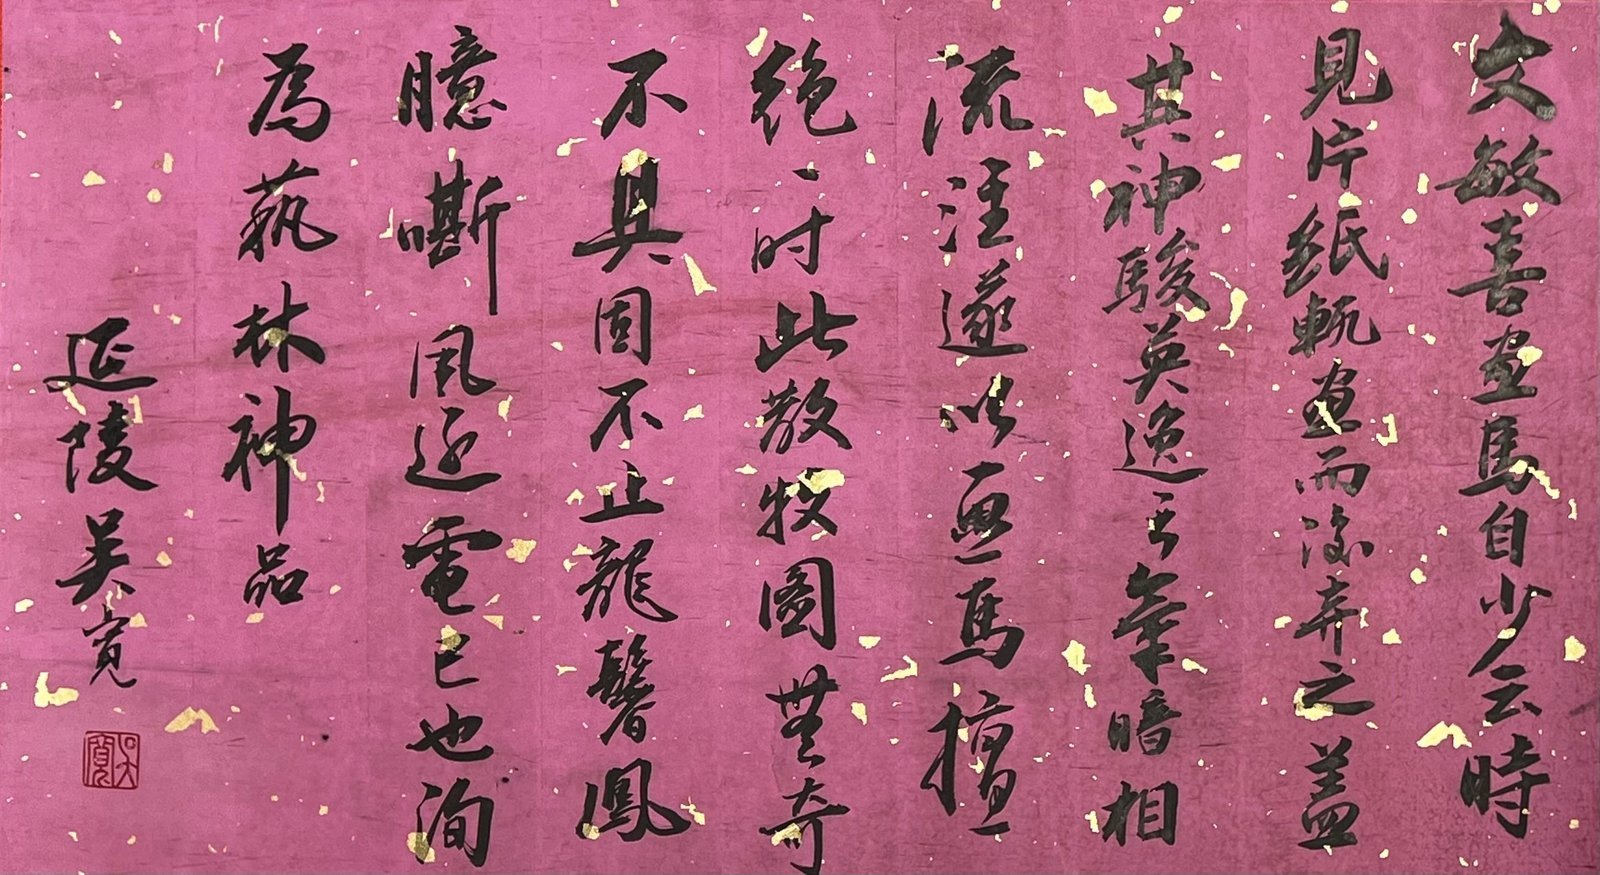 文敏喜畫馬自少至時
見片紙輒畫而後弃之蓋
其神駿英逸之氣暗相
流注遂以画馬擅
絶一时此散牧圖無奇
不具固不止龍鬐鳳
臆嘶風逐電已也洵
為蓺林神品
延陵吴寬
吴寬